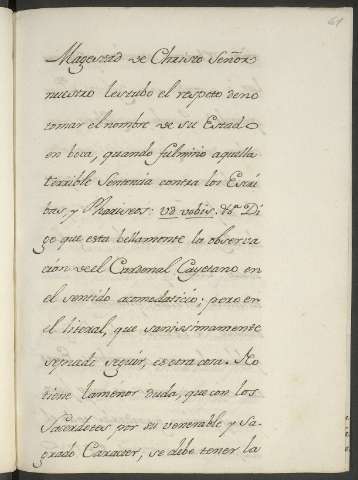 61
Magestad de Christo Señor
nuestro le stubo el respeto de no
tomar el nombre de su Estado
en boca, quando fulminó aquella
terrible Sentencia contra los Escri
bas, y Phariseos: vae vobis. &.a Di
ge que esta bellamente la observa
ción de el Cardenal Cayetano en
el sentido acomodaticio; pero en
el literal, que sanissimamente
se puede seguir, es otra cosa. No
tiene la menor duda, que con los
Sacerdotes por su venerable y Sa
grado Caracter, se debe tener la